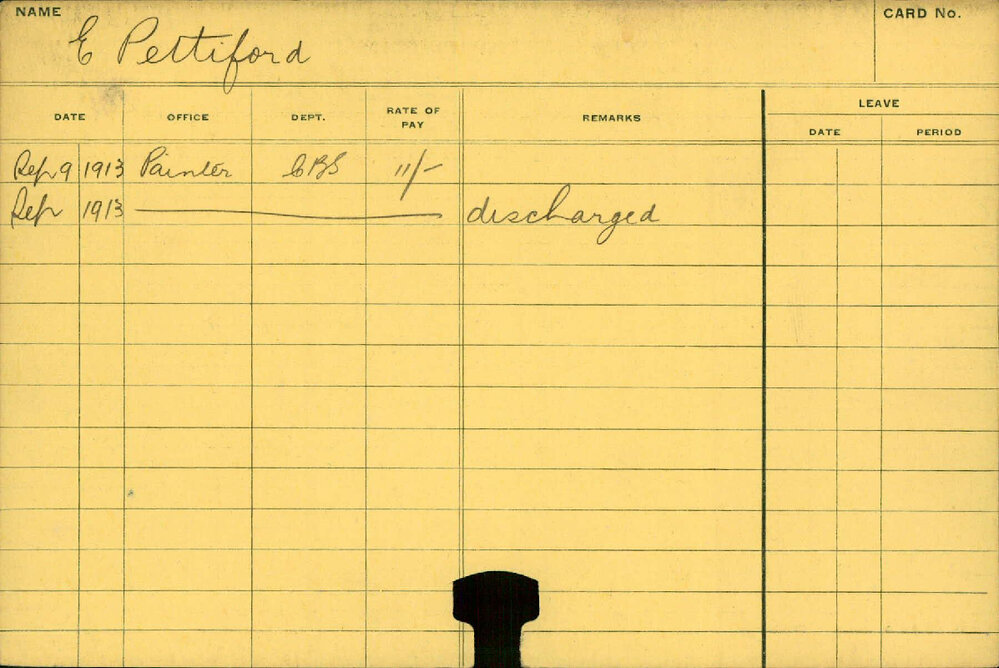 NAME
E Pettiford
CARD No.
DATE OFFICE DEPT. RATE OF PAY REMARKS LEAVE
DATE PERIOD
Sep 9 1913 Painter CBS 11/-
Sep 1913 discharged